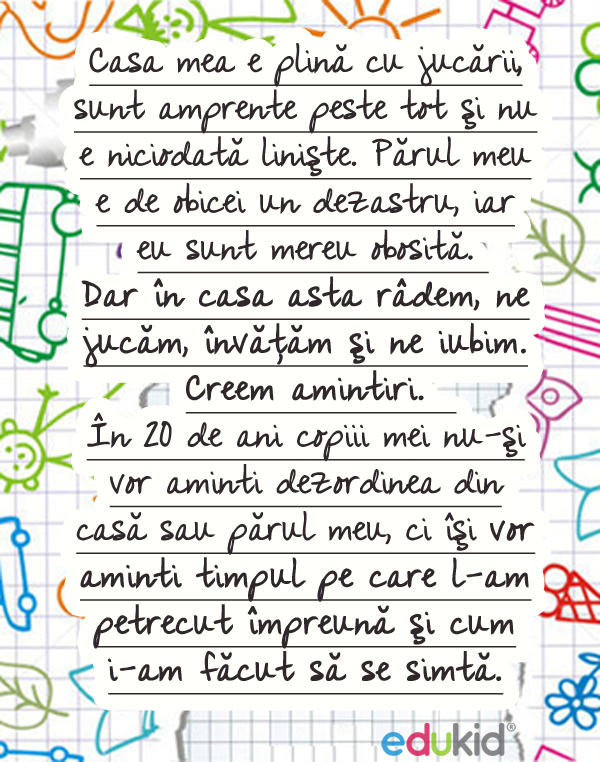 Casa mea e plină cu jucării,
sunt amprente peste tot şi nu
e niciodată linişte. Părul meu
e de obicei un dezastru, iar
eu sunt mereu obosită.
Dar în casa asta râdem, ne
jucăm, învăţăm şi ne iubim.
Creem amintiri.
În 20 de ani copiii mei nu-şi
vor aminti dezordinea din
casă sau părul meu, ci îşi vor
aminti timpul pe care l-am
petrecut împreună şi cum
i-am făcut să se simtă.
edukid®